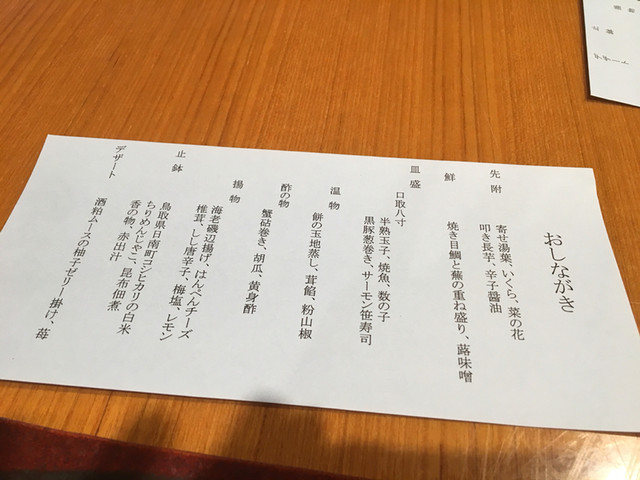 おしながき
先附
寄せ湯葉、いくら、菜の花
叩き長芋、辛子醤油
鮮
焼き目鯛と蕪の重ね盛り、蕗味噌
皿盛
口取八寸
半熟玉子、焼魚、数の子
黒豚葱巻き、サーモン笹寿司
温物
餅の玉地蒸し、茸餡、粉山椒
酢の物
蟹砧巻き、胡瓜、黄身酢
揚物
海老磯辺揚げ、はんぺんチーズ
椎茸、しし唐辛子、梅塩、レモン
止鉢
鳥取県日南町コシヒカリの白米
ちりめんじゃこ、昆布佃煮
香の物、赤出汁
デザート
酒粕ムースの柚子ゼリー掛け、苺